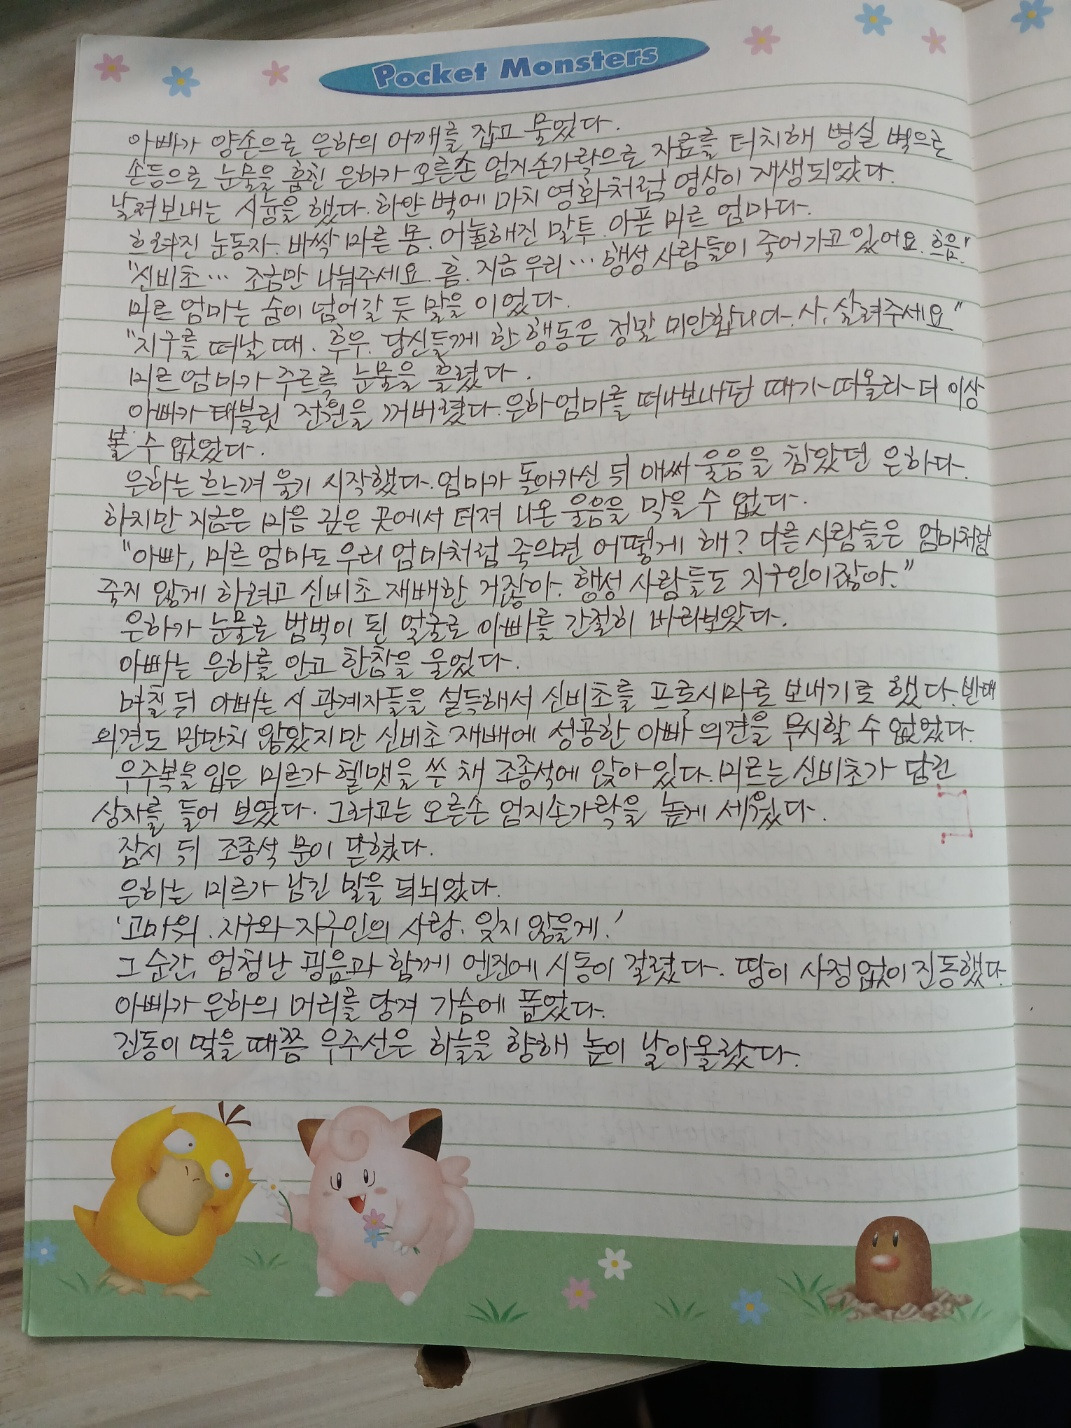 Pocket Monsters
아빠가 양손으로 은하의 어깨를 잡고 물었다.
손등으로 눈물을 훔친 은하가 오른손 엄지손가락으로 자료를 터치해 병실 벽으로
날려보내는 시늉을 했다. 하얀 벽에 마치 영화처럼 영상이 재생되었다.
흐려진 눈동자. 바싹 마른 몸. 어눌해진 말투. 아픈 미르 엄마다.
"신비초… 조금만 나눠주세요. 흠. 지금 우리… 행성 사람들이 죽어가고 있어요. 흐음."
미르 엄마는 숨이 넘어갈 듯 말을 이었다.
"지구를 떠날 때. 후우. 당신들께 한 행동은 정말 미안합니다. 사, 살려주세요."
미르 엄마가 주르륵 눈물을 흘렸다.
아빠가 태블릿 전원을 꺼버렸다. 은하 엄마를 떠나보내던 때가 떠올라 더 이상
볼 수 없었다.
은하는 흐느껴 울기 시작했다. 엄마가 돌아가신 뒤 애써 울음을 참았던 은하다.
하지만 지금은 마음 깊은 곳에서 터져 나온 울음을 막을 수 없다.
"아빠, 미르 엄마도 우리 엄마처럼 죽으면 어떻게 해? 다른 사람들은 엄마처럼
죽지 않게 하려고 신비초 재배한 거잖아. 행성 사람들도 지구인이잖아."
은하가 눈물로 범벅이 된 얼굴로 아빠를 간절히 바라보았다.
아빠는 은하를 안고 한참을 울었다.
며칠 뒤 아빠는 시 관계자들을 설득해서 신비초를 프로시마로 보내기로 했다. 반대
의견도 만만치 않았지만 신비초 재배에 성공한 아빠 의견을 무시할 수 없었다.
우주복을 입은 미르가 헬멧을 쓴 채 조종석에 앉아 있다. 미르는 신비초가 담긴
상자를 들어 보였다. 그러고는 오른손 엄지손가락을 높게 세웠다.
잠시 뒤 조종석 문이 닫혔다.
은하는 미르가 남긴 말을 되뇌었다.
'고마워. 지구와 지구인의 사랑. 잊지 않을게.'
그 순간, 엄청난 굉음과 함께 엔진에 시동이 걸렸다. 땅이 사정없이 진동했다.
아빠가 은하의 머리를 당겨 가슴에 품었다.
진동이 멎을 때쯤 우주선은 하늘을 향해 높이 날아올랐다.